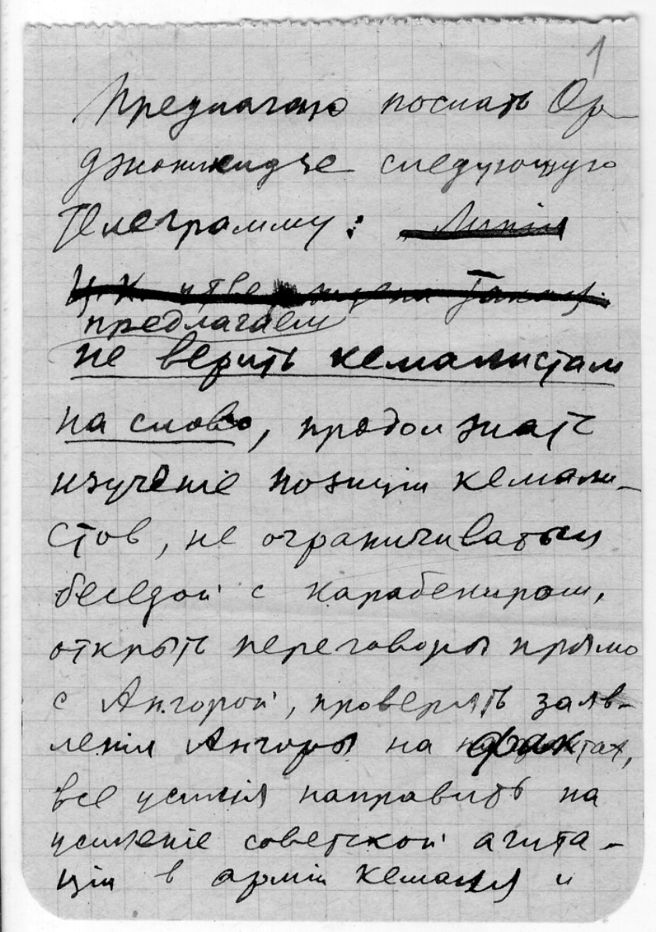 1
Предлагаю послать Ор-
джоникидзе следующую
телеграмму: Линия
Ц.К.
предлагаем
не верить кемалистам
на слово, продолжать
изученіе позиціи кемали-
стов, не ограничиваться
беседой с Карабекиром,
открыть переговоры прямо
с Ангорой, проверять заяв-
ленія Ангоры на фактах,
все усилія направить на
усиленіе советской агита-
ціи в арміи Кемаля и